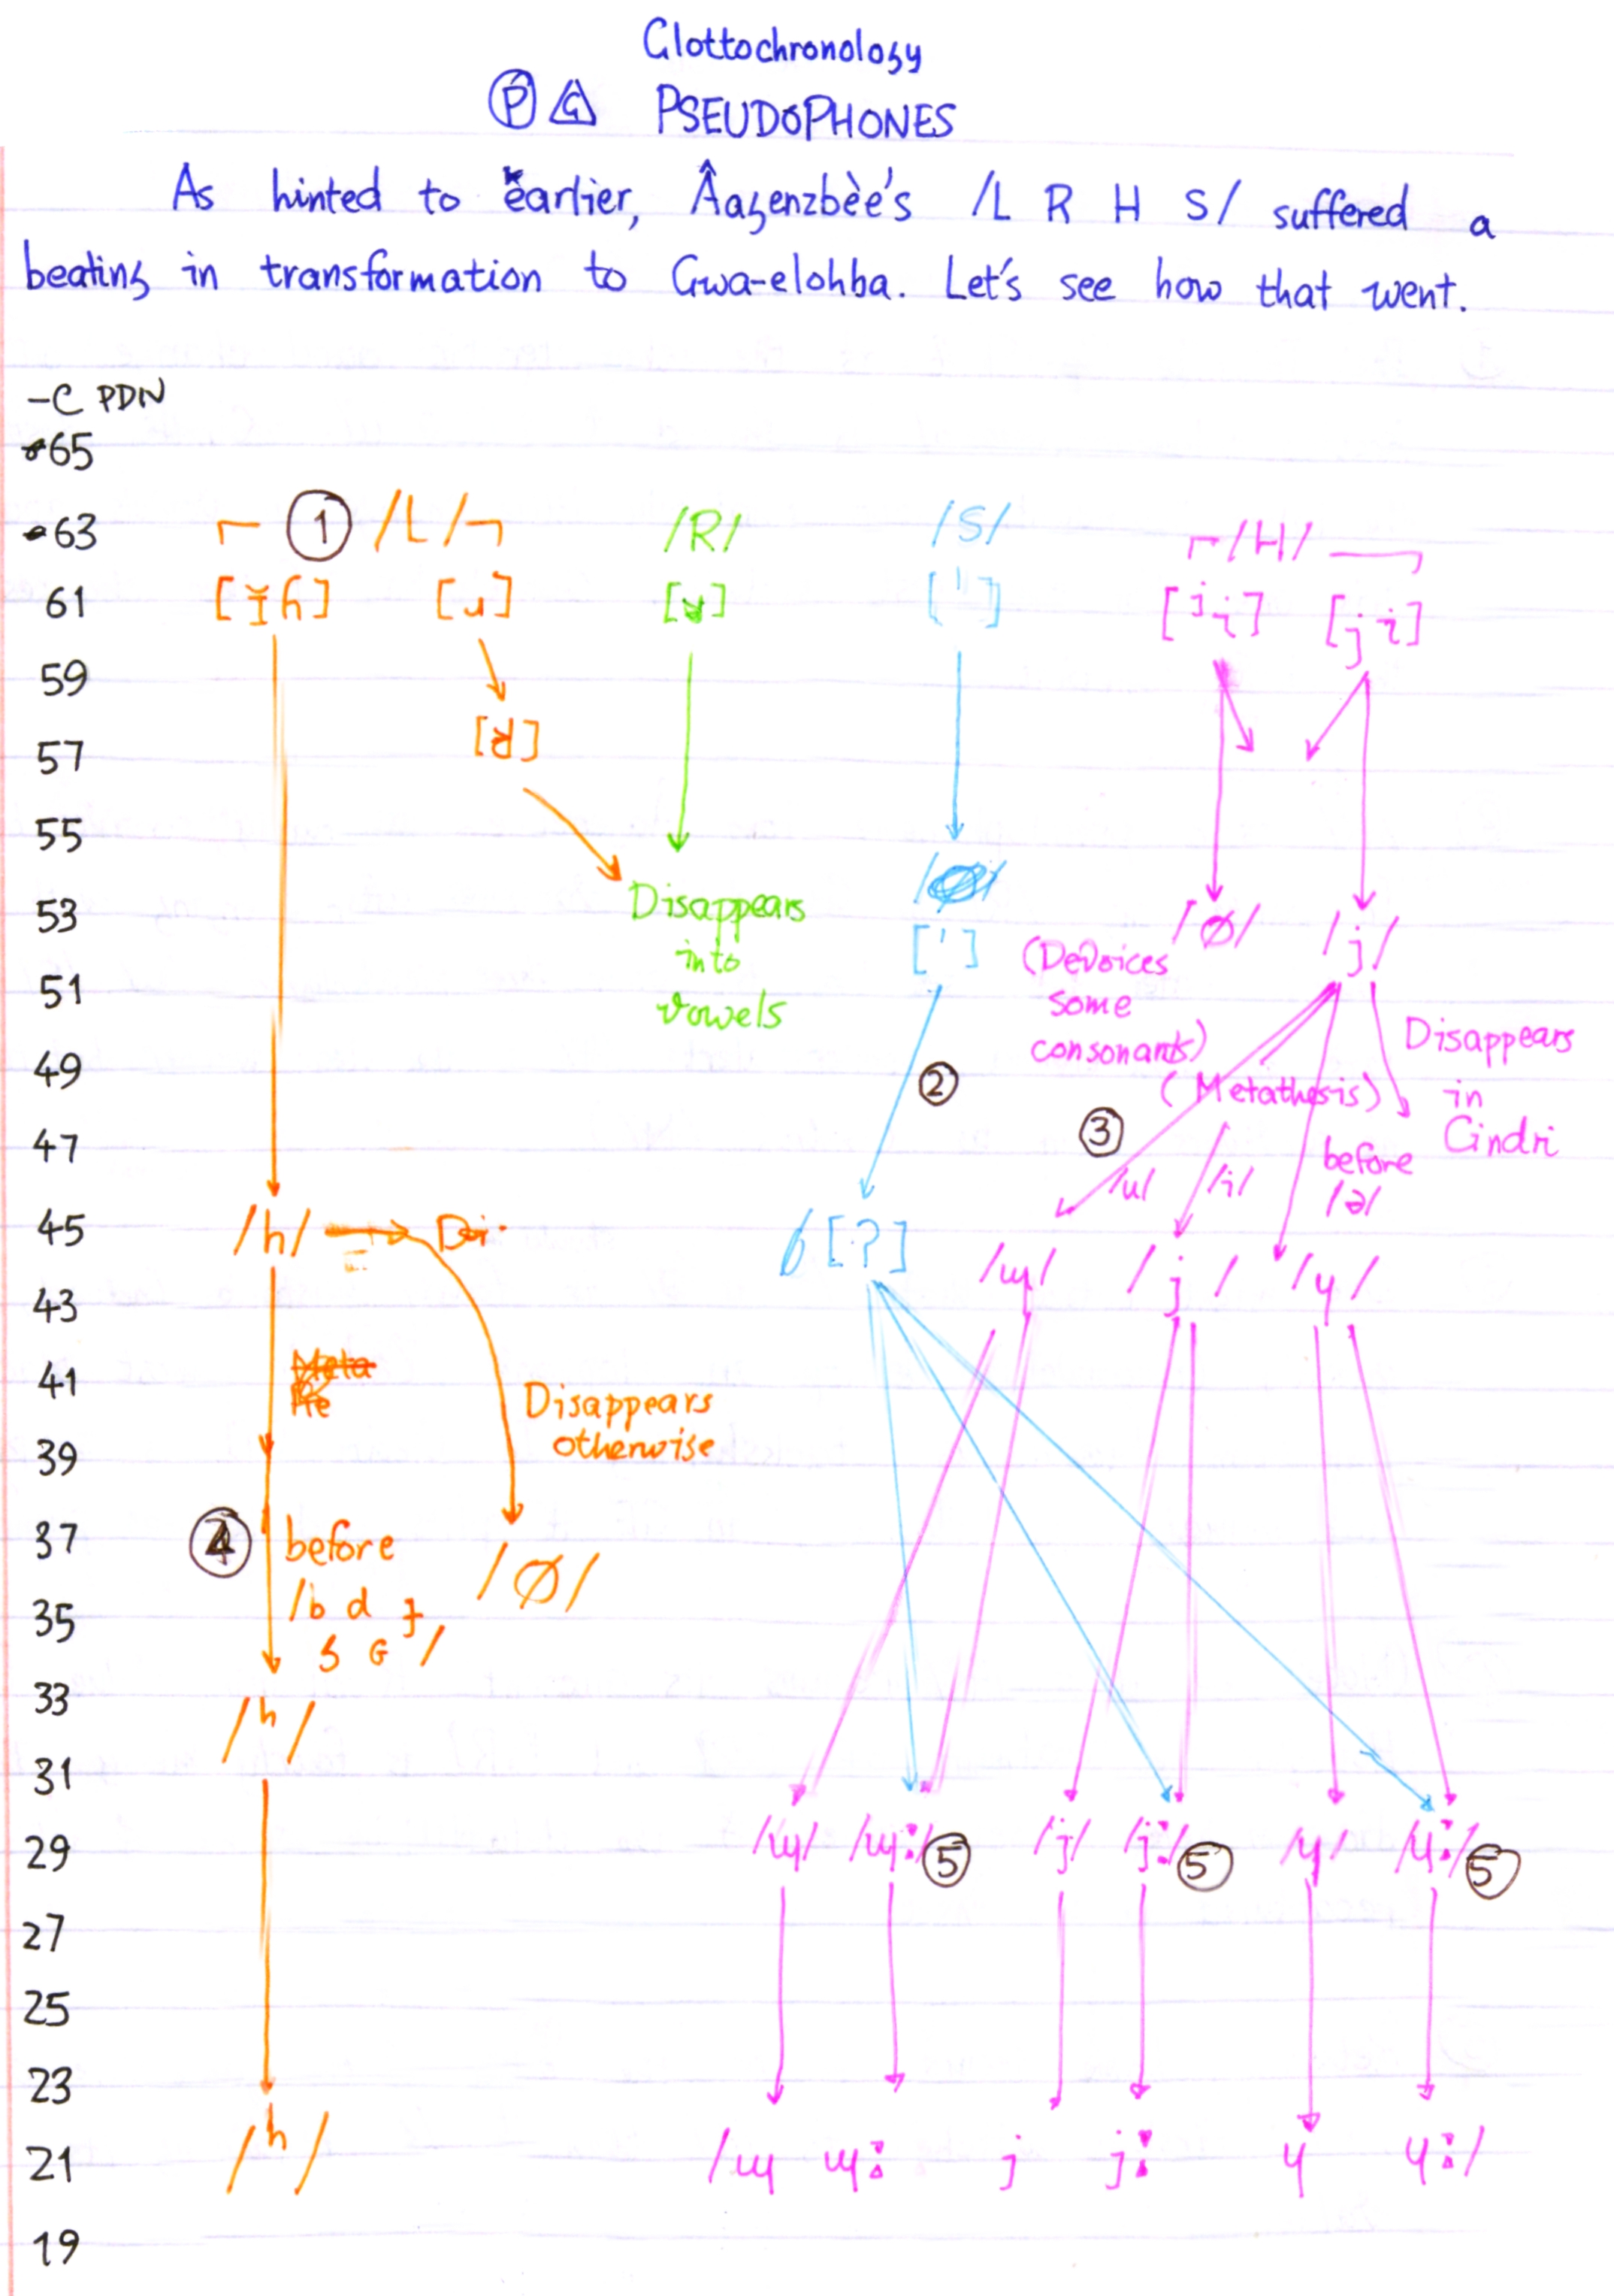 Glottochronology
P G PSEUDOPHONES
As hinted to earlier, Âagenzbèe's /L R H S/ suffered a
beating in transformation to Gwa-elohba. Let's see how that went.
-C PDN
65
63 1 /L/ /R/ /S/ /H/
61
59
57
55
Disappears
53 /Ø/ /j/
into
['] (Devoices
51
vowels
some
consonants)
Disappears
49 2
(Metathesis)
in
Cindri
47 3
/u/ /i/ before
/ə/
45 /h/ [?]
/ɰ/ /j/ /ɥ/
43
41
Disappears
39 otherwise
37 4 before /Ø/
35 /b d ɟ
g ɢ/
33
/ʰ/
31
29 /ɰ/ /ɰː/ 5 /j/ /jː/ 5 /ɥ/ /ɥː/ 5
27
25
23
21 /ʰ/ /ɰ ɰː j jː ɥ ɥː/
19